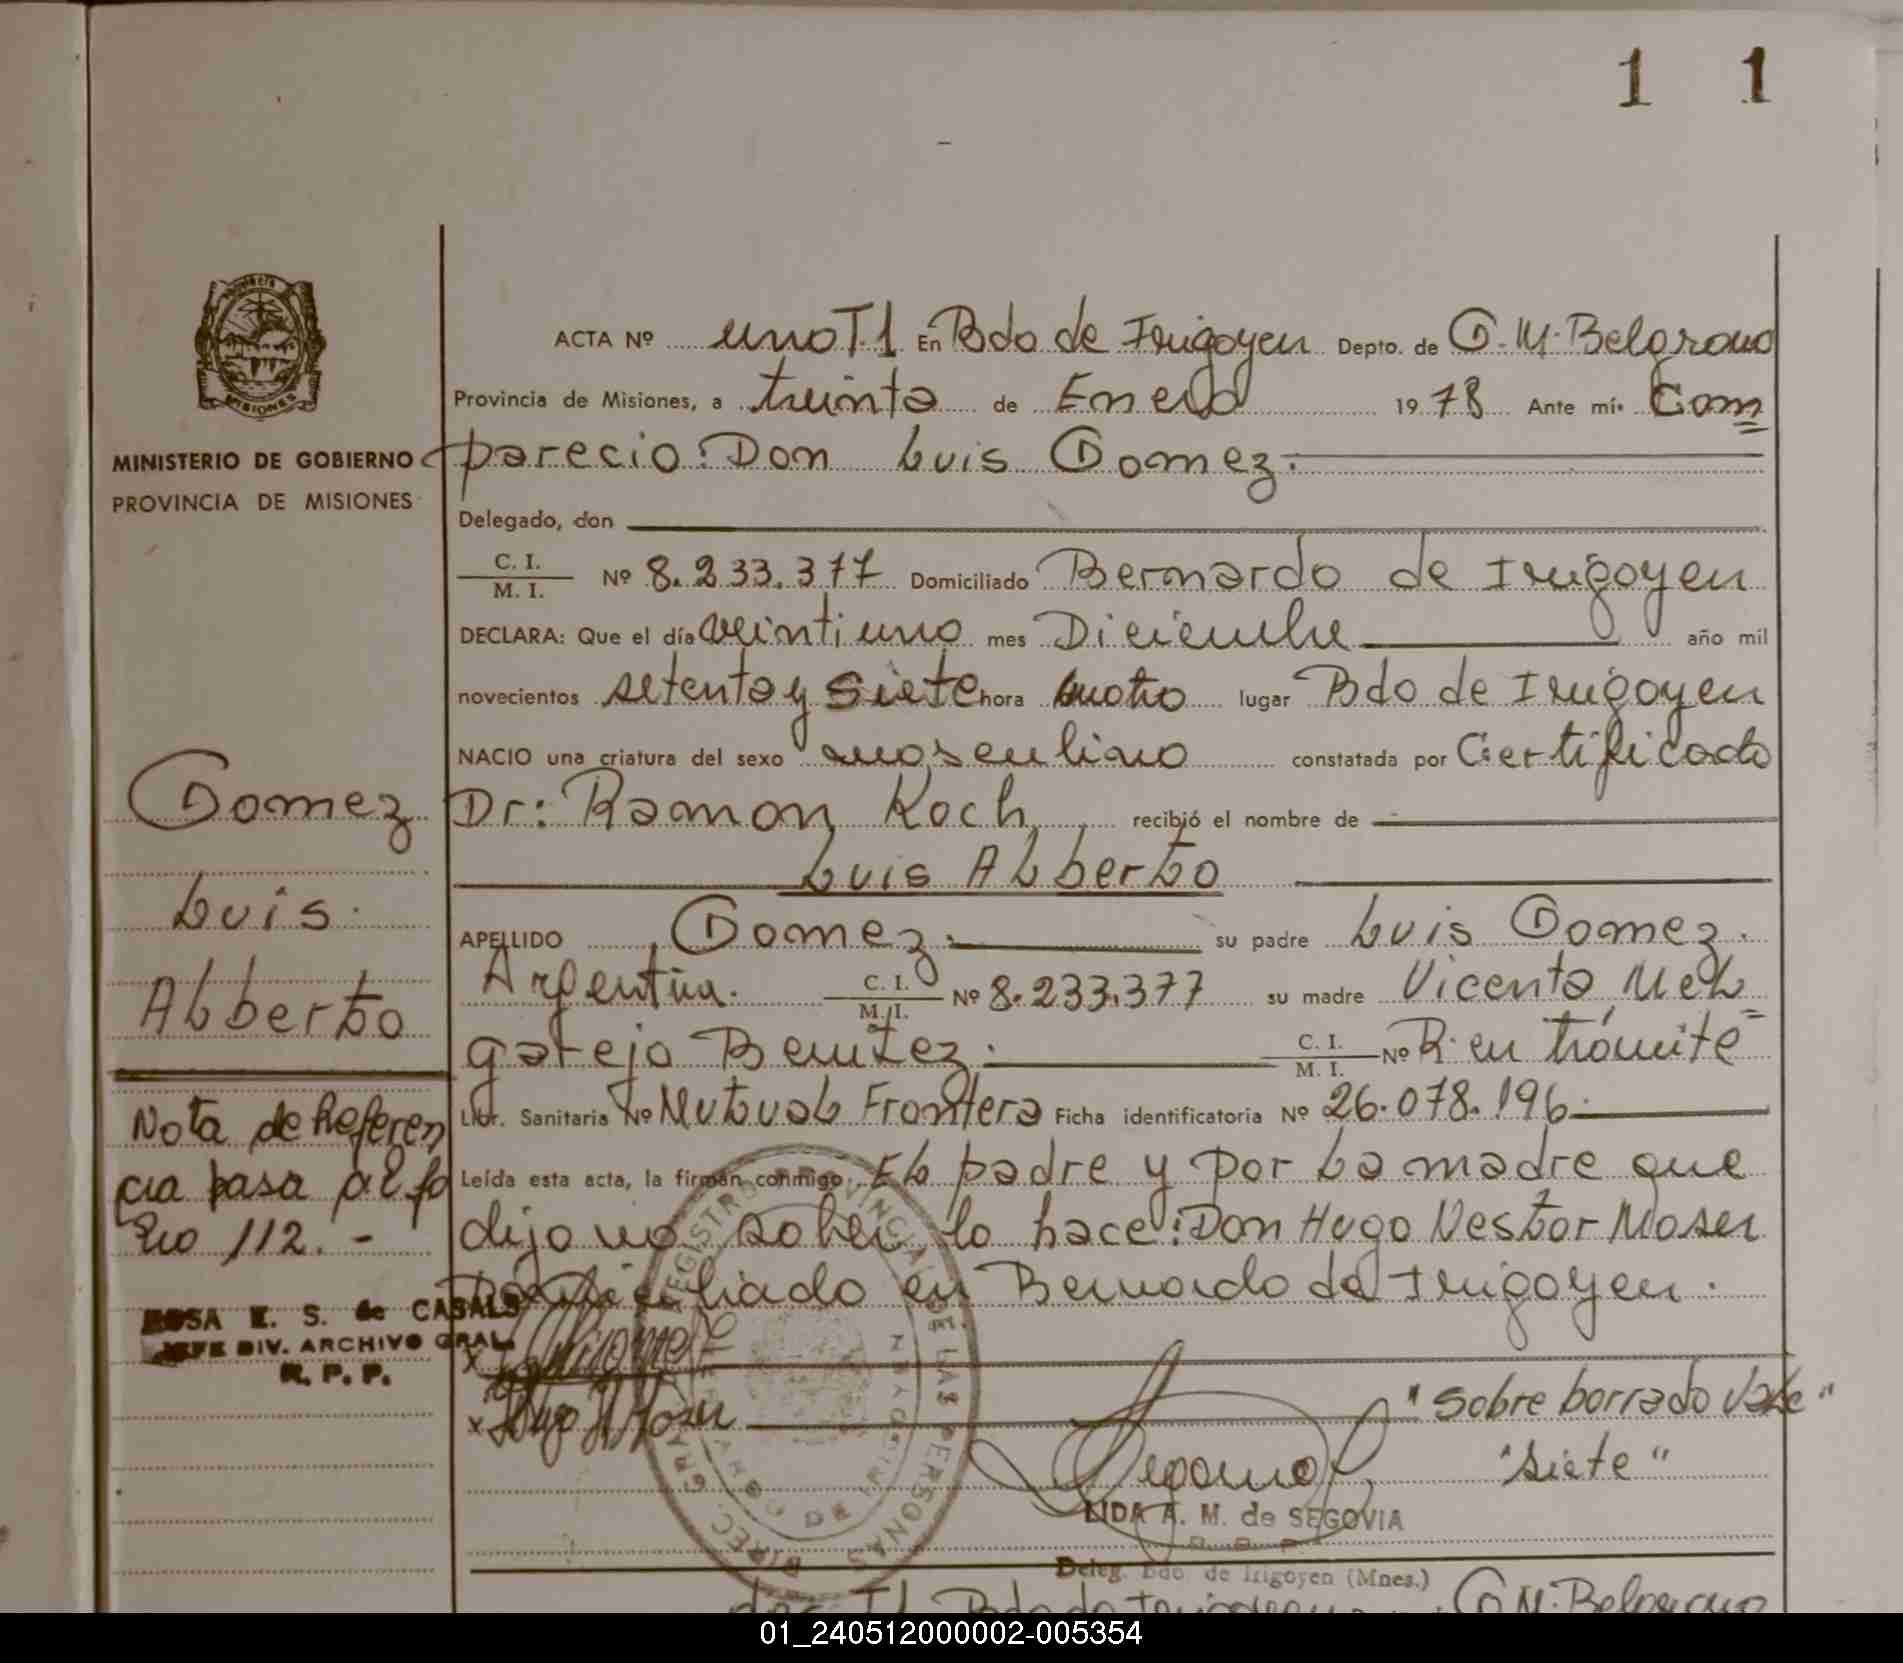 1 1
MISIONES
MINISTERIO DE GOBIERNO
PROVINCIA DE MISIONES
ACTA Nº uno T.1 En Bdo de Irigoyen Depto. de G. M. Belgrano
Provincia de Misiones, a treinta de Enero 1978 Ante mí: Com
parecio: Don Luis Gomez.
Delegado, don
C. I. / M. I. Nº 8.233.377 Domiciliado Bernardo de Irigoyen
DECLARA: Que el día veintiuno mes Diciembre año mil
novecientos setenta y siete hora cuatro lugar Bdo de Irigoyen
NACIO una criatura del sexo masculino constatada por Certificado
Dr: Ramon Koch recibió el nombre de
Luis Alberto
APELLIDO Gomez. su padre Luis Gomez.
Argentina. C. I. / M. I. Nº 8.233.377 su madre Vicenta Mel
garejo Benitez. C. I. / M. I. Nº R. en trámite
Libr. Sanitaria Nº Mutual Frontera Ficha identificatoria Nº 26.078.196.
Leída esta acta, la firman conmigo El padre y por la madre que
dijo no saber lo hace: Don Hugo Nestor Moser
Domiciliado en Bernardo de Irigoyen.
Gomez
Luis
Alberto
Nota de Referen
cia pasa al fo
lio 112. -
ROSA E. S. de CASALS
JEFE DIV. ARCHIVO GRAL.
R. P. P.
x
x Hugo N Moser
"Sobre borrado Vale"
"siete"
LIDA A. M. de SEGOVIA
Deleg. Bdo. de Irigoyen (Mnes.)
DIREC. GRAL. REGISTRO PROVINCIAL DE LAS PERSONAS
BERNARDO DE IRIGOYEN
dos T1 Bdo de Irigoyen G M. Belgrano
01_240512000002-005354